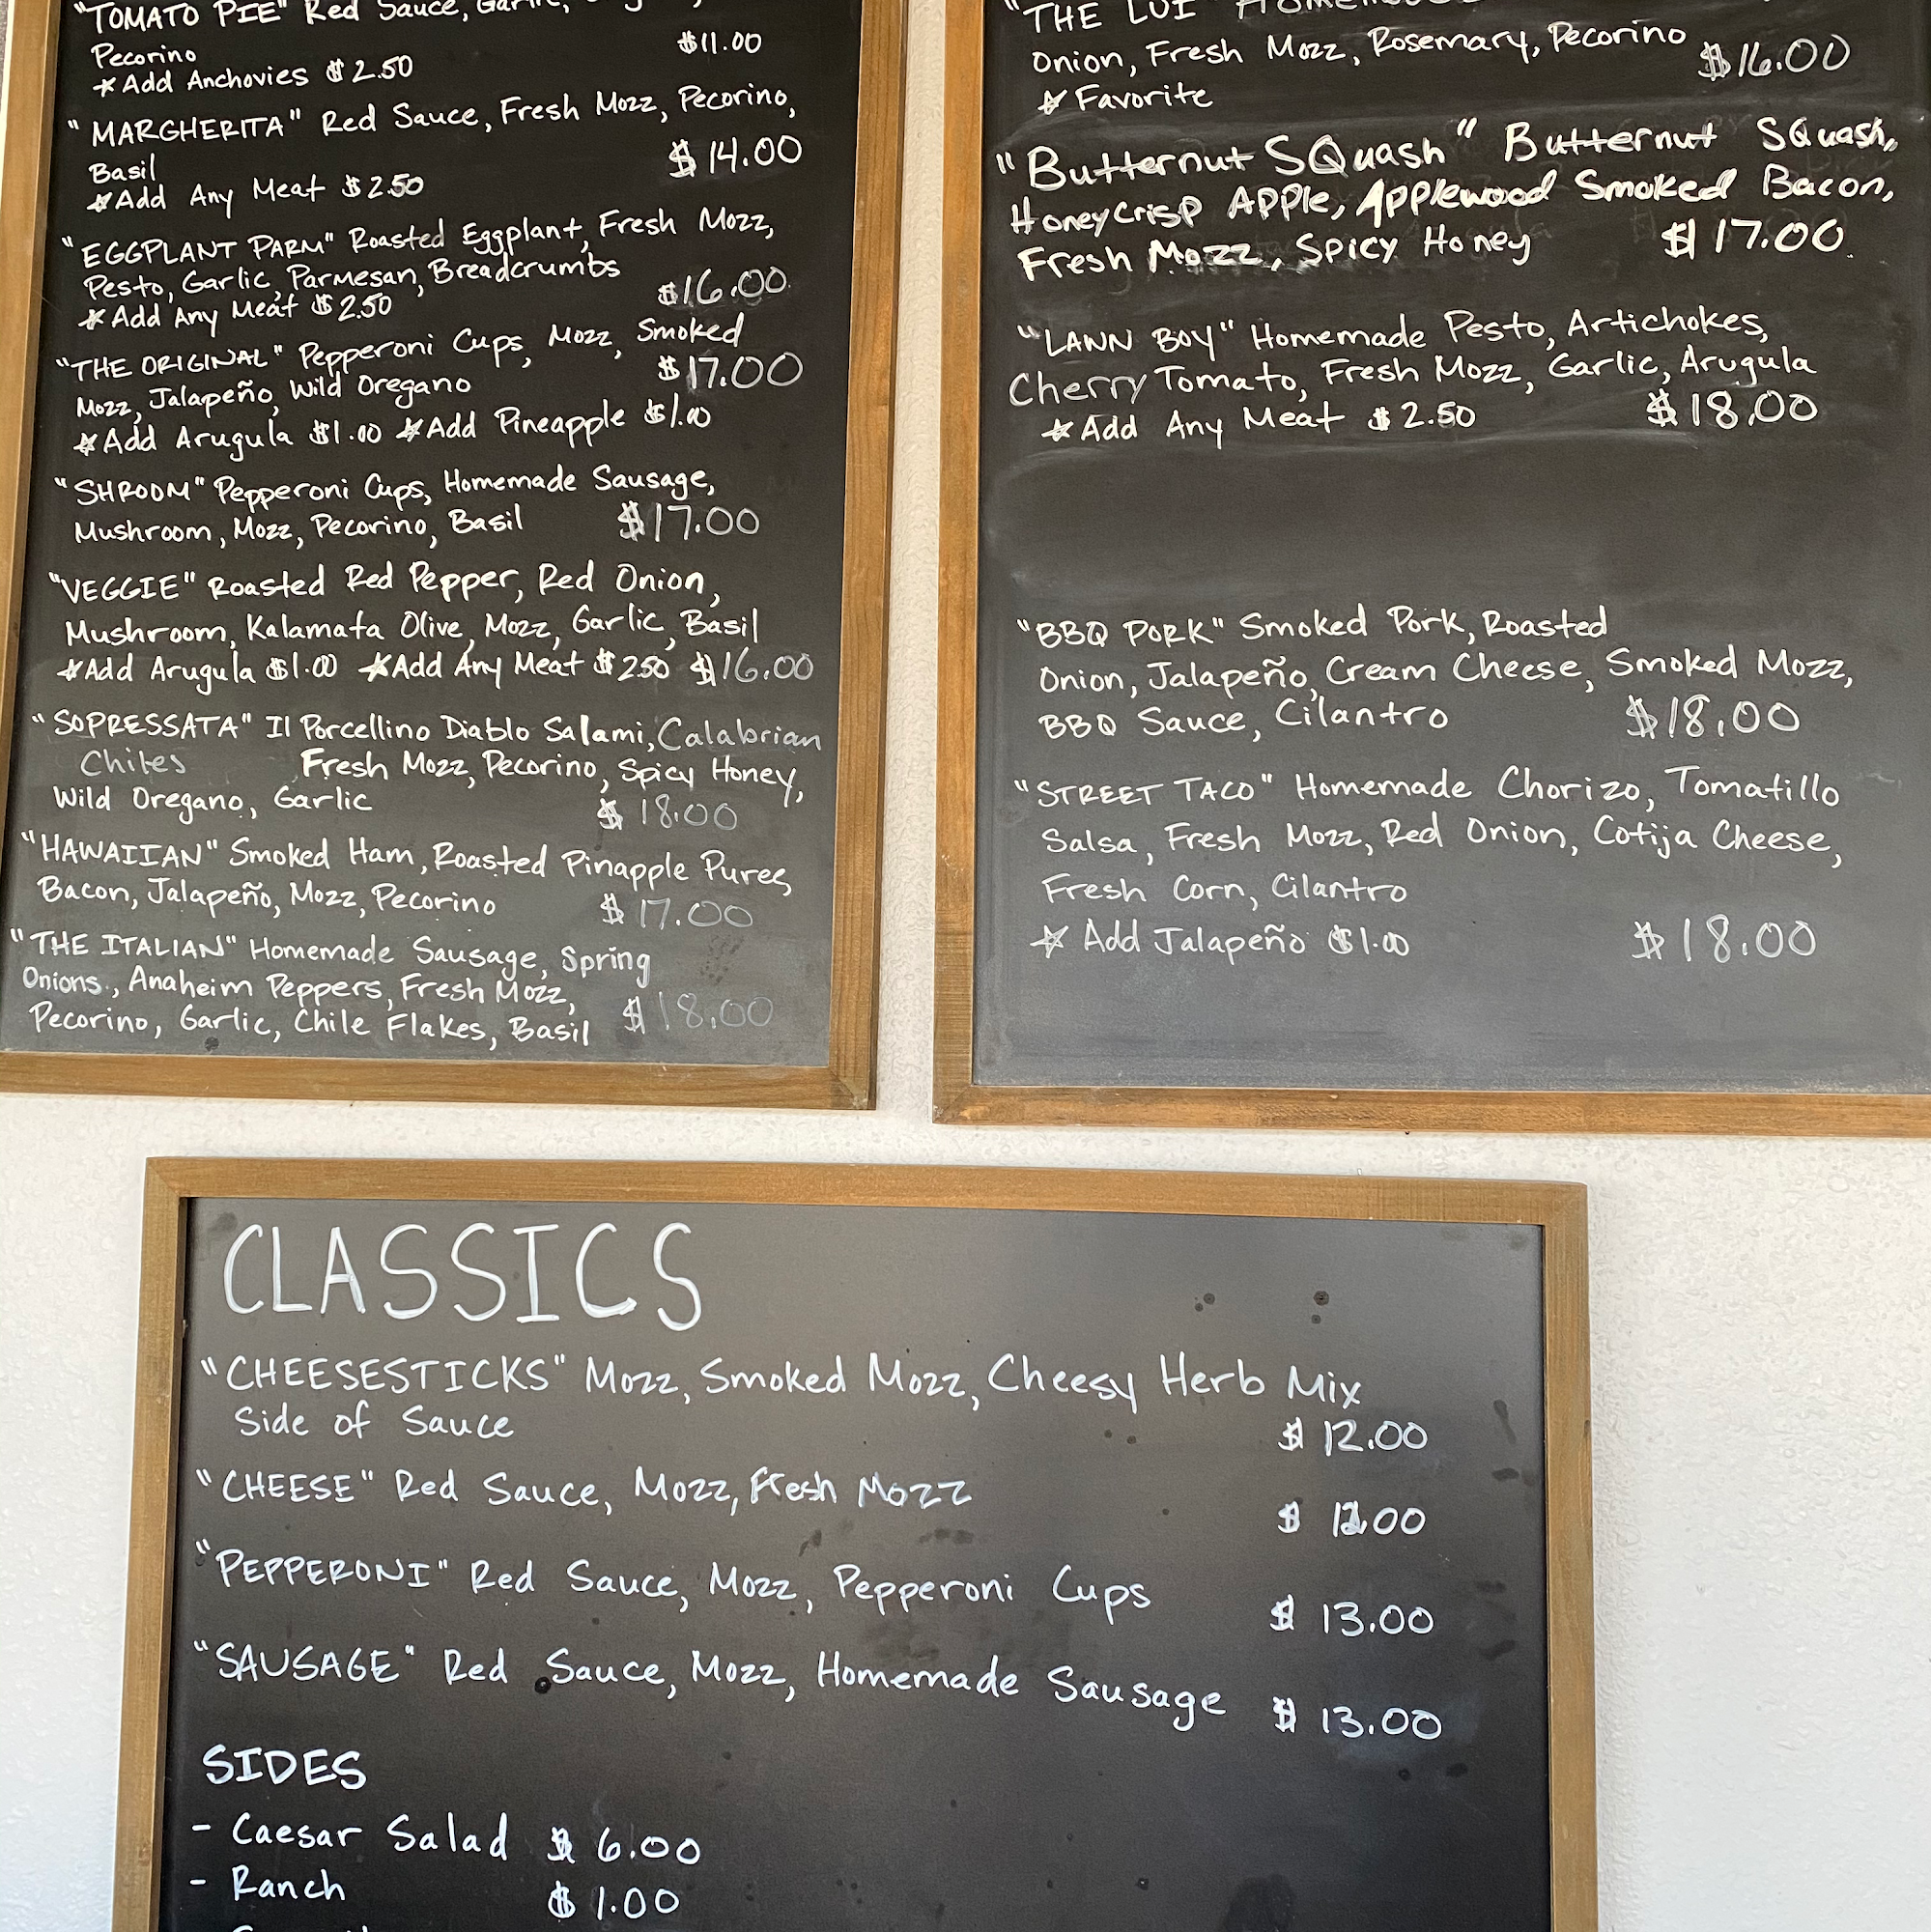 "TOMATO PIE" Red Sauce,
Pecorino $11.00
*Add Anchovies $2.50
"MARGHERITA" Red Sauce, Fresh Mozz, Pecorino,
Basil $14.00
*Add Any Meat $2.50
"EGGPLANT PARM" Roasted Eggplant, Fresh Mozz,
Pesto, Garlic, Parmesan, Breadcrumbs
*Add Any Meat $2.50 $16.00
"THE ORIGINAL" Pepperoni Cups, Mozz, Smoked
Mozz, Jalapeño, Wild Oregano $17.00
*Add Arugula $1.00 *Add Pineapple $1.00
"SHROOM" Pepperoni Cups, Homemade Sausage,
Mushroom, Mozz, Pecorino, Basil $17.00
"VEGGIE" Roasted Red Pepper, Red Onion,
Mushroom, Kalamata Olive, Mozz, Garlic, Basil
*Add Arugula $1.00 *Add Any Meat $2.50 $16.00
"SOPRESSATA" Il Porcellino Diablo Salami, Calabrian
Chiles Fresh Mozz, Pecorino, Spicy Honey,
Wild Oregano, Garlic $18.00
"HAWAIIAN" Smoked Ham, Roasted Pinapple Puree,
Bacon, Jalapeño, Mozz, Pecorino $17.00
"THE ITALIAN" Homemade Sausage, Spring
Onions, Anaheim Peppers, Fresh Mozz,
Pecorino, Garlic, Chile Flakes, Basil $18.00
"THE LUI"
Onion, Fresh Mozz, Rosemary, Pecorino $16.00
*Favorite
"Butternut SQuash" Butternut SQuash,
HoneyCrisp APPle, Applewood Smoked Bacon,
Fresh Mozz, Spicy Honey $17.00
"LAWN BOY" Homemade Pesto, Artichokes,
Cherry Tomato, Fresh Mozz, Garlic, Arugula
*Add Any Meat $2.50 $18.00
"BBQ PORK" Smoked Pork, Roasted
Onion, Jalapeño, Cream Cheese, Smoked Mozz,
BBQ Sauce, Cilantro $18.00
"STREET TACO" Homemade Chorizo, Tomatillo
Salsa, Fresh Mozz, Red Onion, Cotija Cheese,
Fresh Corn, Cilantro
*Add Jalapeño $1.00 $18.00
CLASSICS
"CHEESESTICKS" Mozz, Smoked Mozz, Cheesy Herb Mix
Side of Sauce $12.00
"CHEESE" Red Sauce, Mozz, Fresh Mozz
$12.00
"PEPPERONI" Red Sauce, Mozz, Pepperoni Cups
$13.00
"SAUSAGE" Red Sauce, Mozz, Homemade Sausage
$13.00
SIDES
- Caesar Salad $6.00
- Ranch $1.00